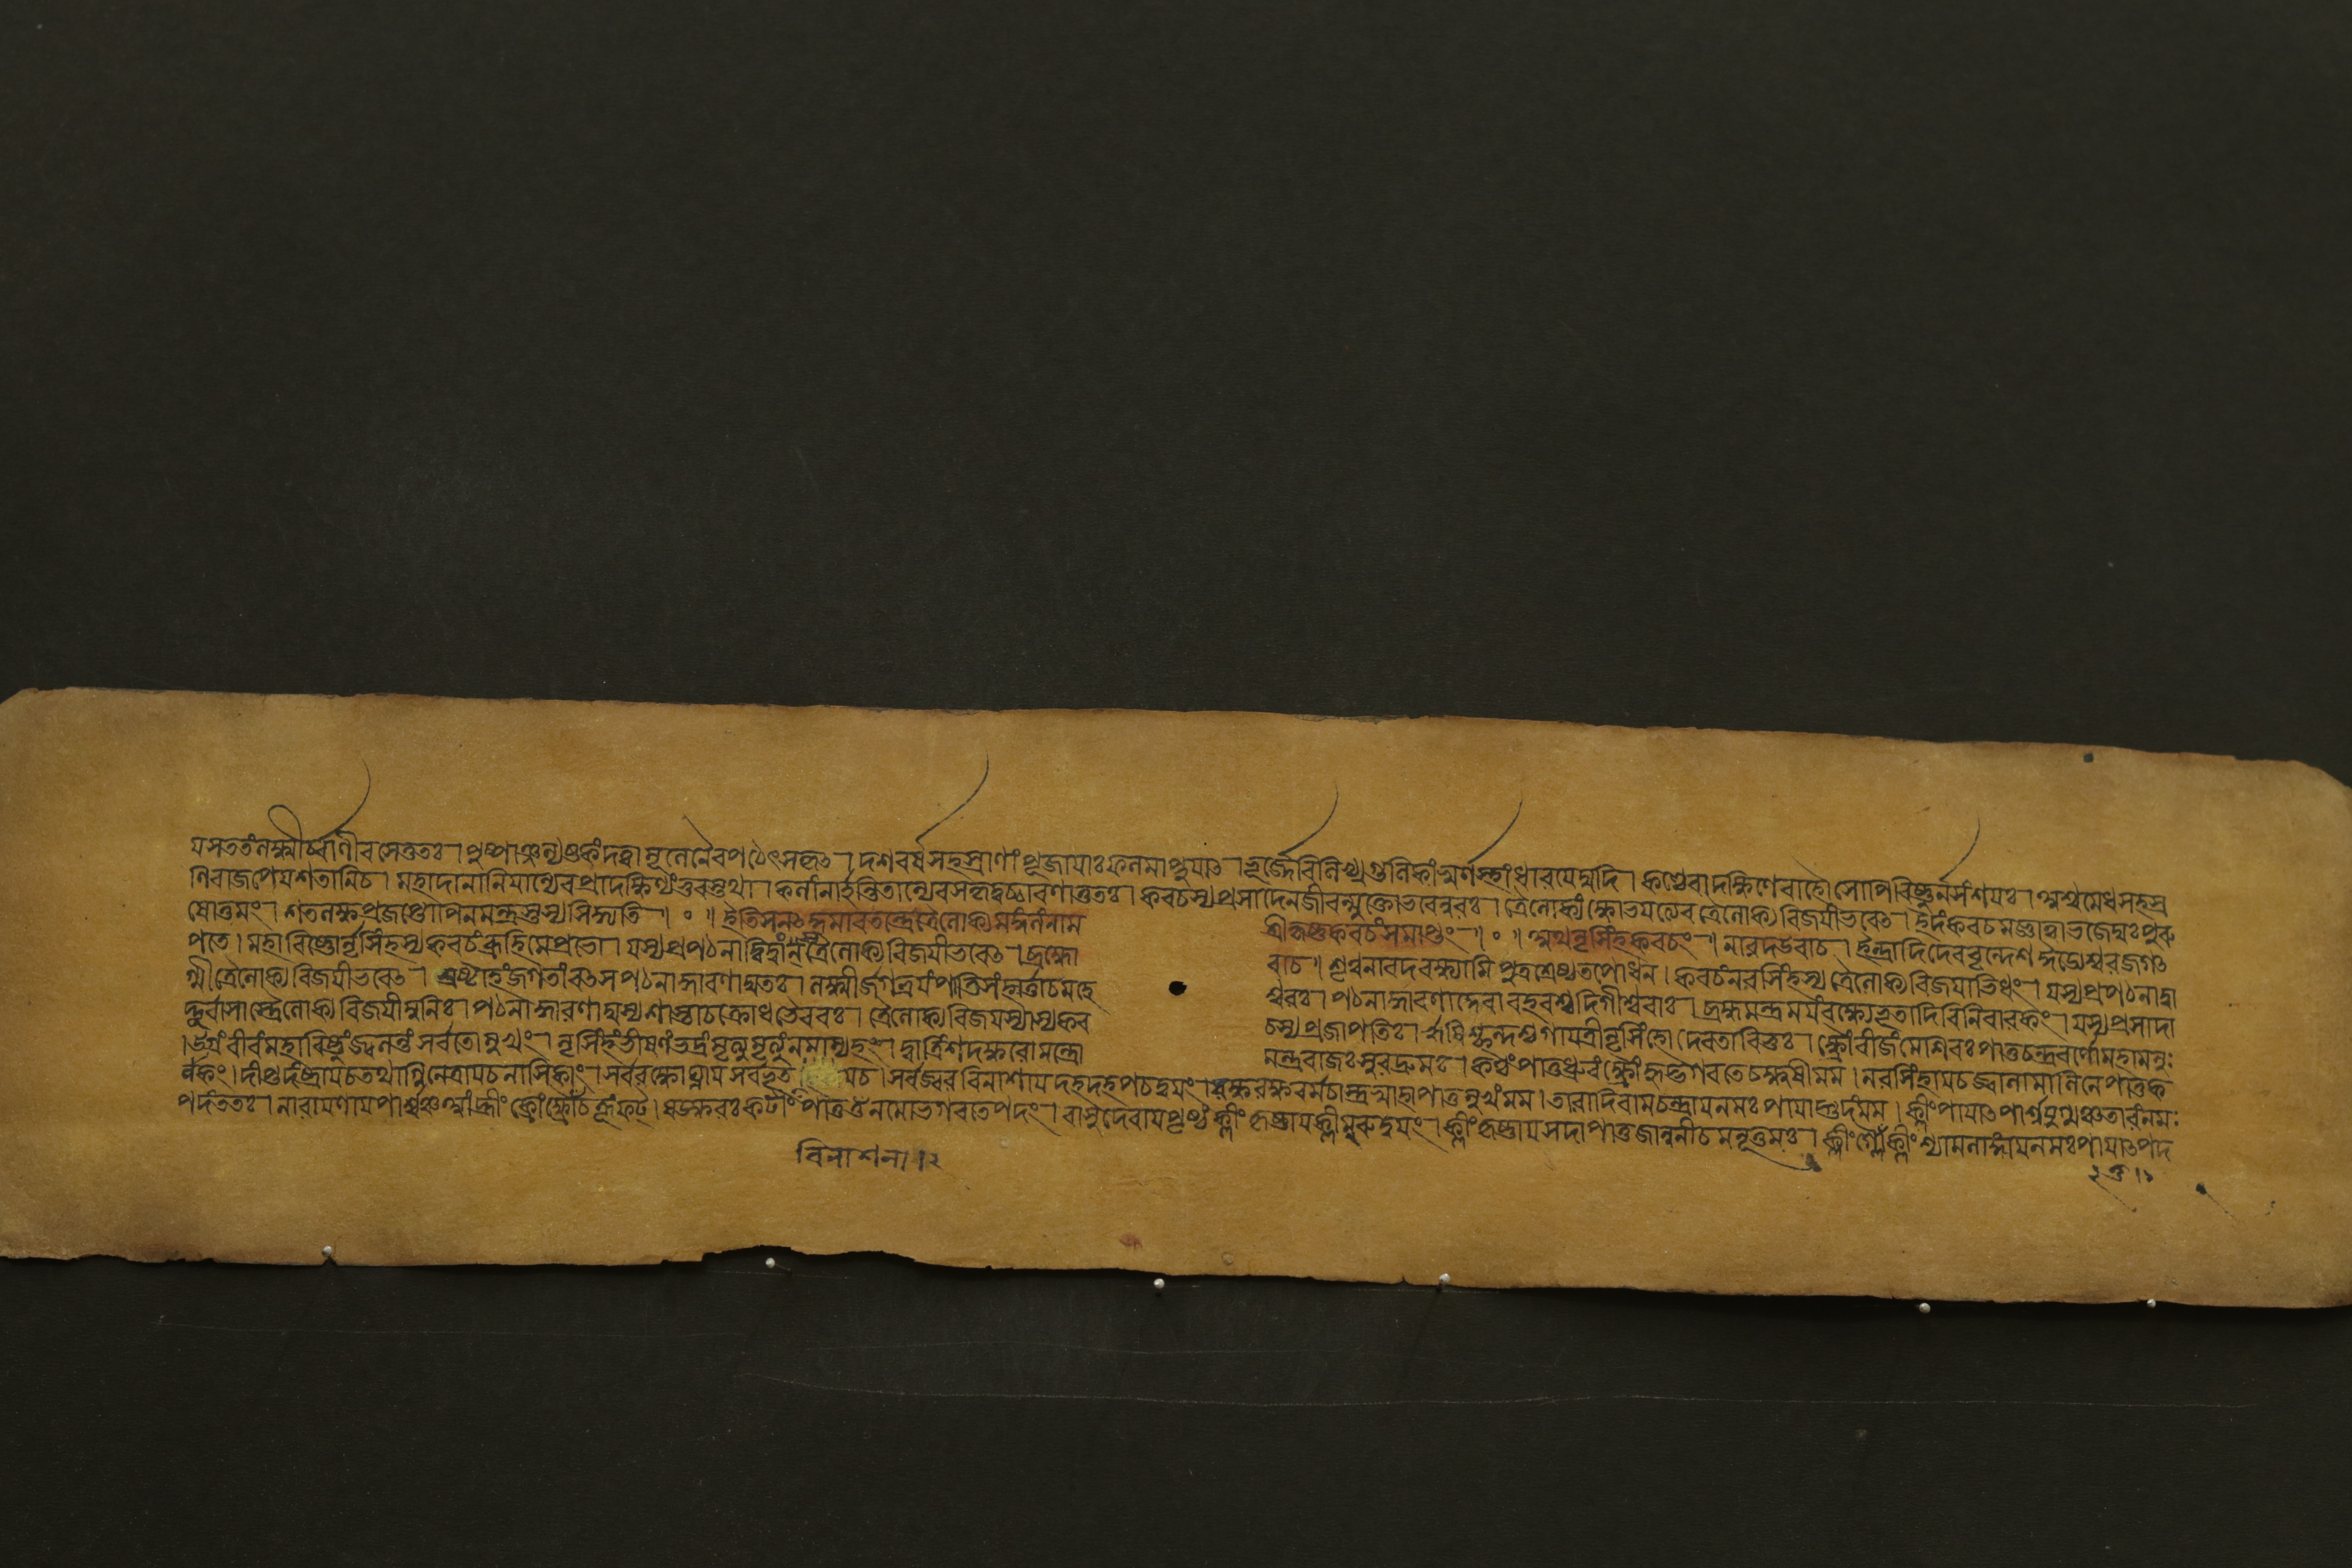 যসততংলক্ষ্মীর্ব্বাণীবসেত্ততঃ।পুষ্পাঞ্জল্যষ্টকংদত্বামূলেনৈবপঠেৎসকৃৎ। দশবর্ষসহস্রাণাং পূজাযাঃফলমাপ্নুযাৎ।ভূর্জ্জেবিলিখ্যগুলিকাংস্বর্ণস্থাংধারযেদ্যদি। কণ্ঠেবাদক্ষিণেবাহৌসোপিবিষ্ণুর্নসংশযঃ। অশ্বমেধসহস্রা
ণিবাজপেযশতানিচ। মহাদানানিযান্যেবপ্রাদক্ষিণ্যংভুবস্তথা। কলাংনার্হন্তিতান্যেবসকৃদুচ্চারণাত্ততঃ। কবচস্যপ্রসাদেনজীবন্মুক্তোভবেন্নরঃ। ত্রৈলোক্যংক্ষোভযত্যেবত্রৈলোক্যবিজযীভবেৎ। ইদংকবচমজ্ঞাত্বাভজেদ্যঃপুরু
ষোত্তমং। শতলক্ষপ্রজপ্তোপিনমন্ত্রস্তস্যসিদ্ধ্যতি॥ ০ ॥ ইতিসনৎকুমারতন্ত্রেত্রৈলোক্যমঙ্গলংনাম শ্রীকৃষ্ণকবচংসমাপ্তং॥ ০ ॥ অথনৃসিংহকবচং॥ নারদউবাচ। ইন্দ্রাদিদেববৃন্দেশঈড্যেশ্বরজগৎ
পতে। মহাবিষ্ণোর্নৃসিংহস্যকবচংব্রূহিমেপ্রভো। যস্যপ্রপঠনাদ্বিদ্বাংস্ত্রৈলোক্যবিজযীভবেৎ। ব্রহ্মো বাচ॥ শৃণুনারদবক্ষ্যামিপুত্রশ্রেষ্ঠতপোধন। কবচংনরসিংহস্যত্রৈলোক্যবিজযাভিধং। যস্যপ্রপঠনাদ্বা
গ্মীত্রৈলোক্যবিজযীভবেৎ। স্রষ্টাহংজগতাংবৎসপঠনাদ্ধারণাদ্যতঃ। লক্ষ্মীর্জগত্রযংপাতিসংহর্ত্তাচমহে শ্বরঃ। পঠনাদ্ধারণাদ্দেবাবহবশ্চদিগীশ্বরাঃ। ব্রহ্মমন্ত্রমযংবক্ষ্যেভূতাদিবিনিবারকং। যস্যপ্রসাদা
দ্দুর্বাসাস্ত্রৈলোক্যবিজযীমুনিঃ। পঠনাদ্ধারণাদ্যস্যশাস্তাচক্রোধভৈরবঃ। ত্রৈলোক্যবিজযস্যাস্যকব চস্যপ্রজাপতিঃ। ঋষিশ্ছন্দশ্চগাযত্রীনৃসিংহোদেবতাবিভুঃ। ক্ষ্রৌংবীজংমেশিরঃপাতুচন্দ্রবর্ণোমহামনুঃ
।উগ্রংবীরংমহাবিষ্ণুংজ্বলন্তং সর্বতোমুখং। নৃসিংহংভীষণংভদ্রংমৃত্যুমৃত্যুংনমাম্যহং। দ্বাত্রিংশদক্ষরোমন্ত্রো মন্ত্ররাজঃসুরদ্রুমঃ। কণ্ঠংপাতুধ্রুবংক্ষ্রৌংহৃদ্ভগবতেচক্ষুষীমম। নরসিংহাযচজ্বালামালিনেপাতুক
র্ণকং।দীপ্তদংষ্ট্রাযচতথাগ্নিনেত্রাযচনাসিকাং।সর্বরক্ষোঘ্নাযসর্বভূত যচ।সর্বজ্বরবিনাশাযদহদহপচদ্বযং।রক্ষরক্ষবর্মচাস্ত্রস্বাহাপাতুমুখংমম।তারাদিরামচন্দ্রাযনমঃপাযাদ্গুদংমম। ক্লীংপাযাৎপার্শ্বযুগ্মঞ্চতারংনমঃ
পদংততঃ। নারাযণাযপার্শ্বঞ্চআংহ্রীংক্রোংক্ষ্রৌংচহূংফট্।ষডক্ষরঃকটিংপাতুওঁনমোভগবতেপদং।বাসুদেবাযপৃষ্ঠংক্লীংকৃষ্ণাযক্লীমূরুদ্বযং।ক্লীংকৃষ্ণাযসদাপাতুজানুনীচমনূত্তমঃ। ক্লীংগ্লৌংক্লীংশ্যামলাঙ্গাযনমঃপাযাৎপদ
বিনাশনা।২